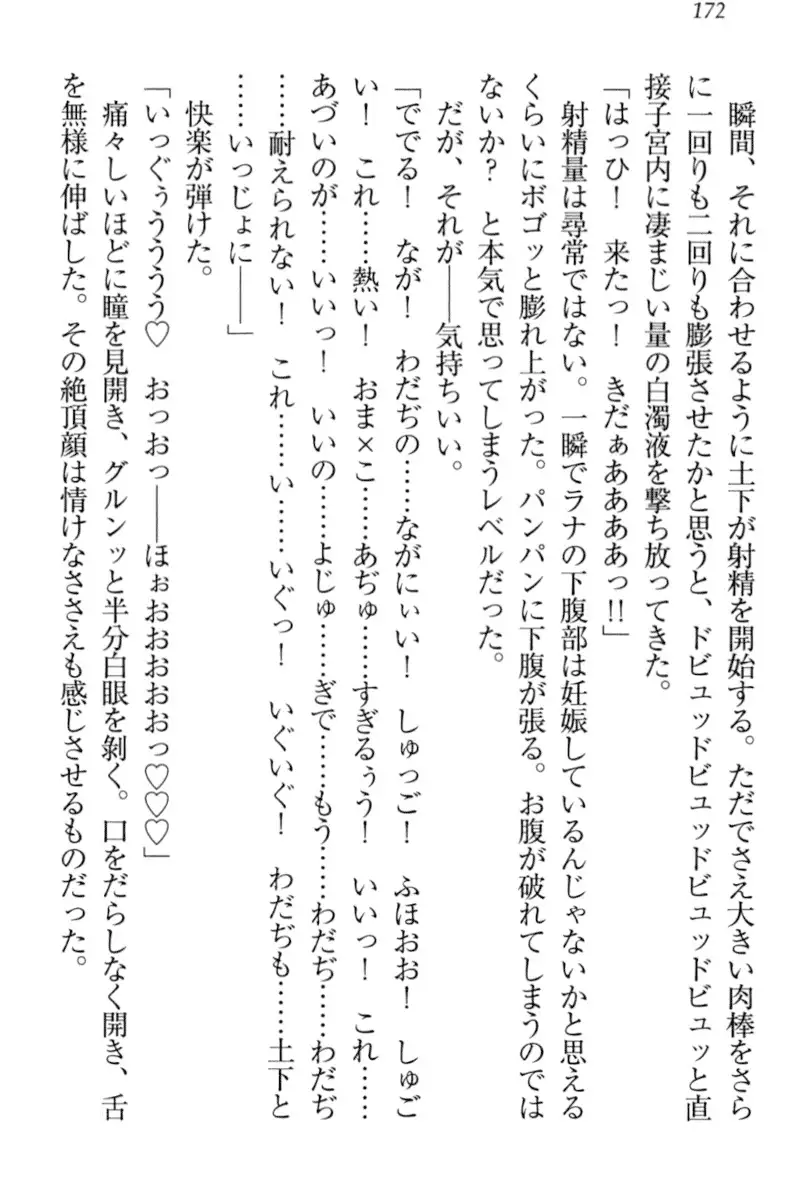 172
　瞬間、それに合わせるように土下が射精を開始する。ただでさえ大きい肉棒をさら
に一回りも二回りも膨張させたかと思うと、ドビュッドビュッドビュッドビュッと直
接子宮内に凄まじい量の白濁液を撃ち放ってきた。
「はっひ！　来たっ！　きだぁああああっ!!」
　射精量は尋常ではない。一瞬でラナの下腹部は妊娠しているんじゃないかと思える
くらいにボゴッと膨れ上がった。パンパンに下腹が張る。お腹が破れてしまうのでは
ないか？　と本気で思ってしまうレベルだった。
　だが、それが――気持ちいい。
「ででる！　なが！　わだぢの……ながにぃい！　しゅっご！　ふほおお！　しゅご
い！　これ……熱い！　おま×こ……あぢゅ……すぎるぅう！　いいっ！　これ……
あづいのが……いいっ！　いいの……よじゅ……ぎで……もう……わだぢ……わだぢ
……耐えられない！　これ……い……いぐっ！　いぐいぐ！　わだぢも……土下と
……いっじょに――」
　快楽が弾けた。
「いっぐぅうううう♡　おっおっ――ほぉおおおおおっ♡♡♡」
　痛々しいほどに瞳を見開き、グルンッと半分白眼を剝く。口をだらしなく開き、舌
を無様に伸ばした。その絶頂顔は情けなささえも感じさせるものだった。